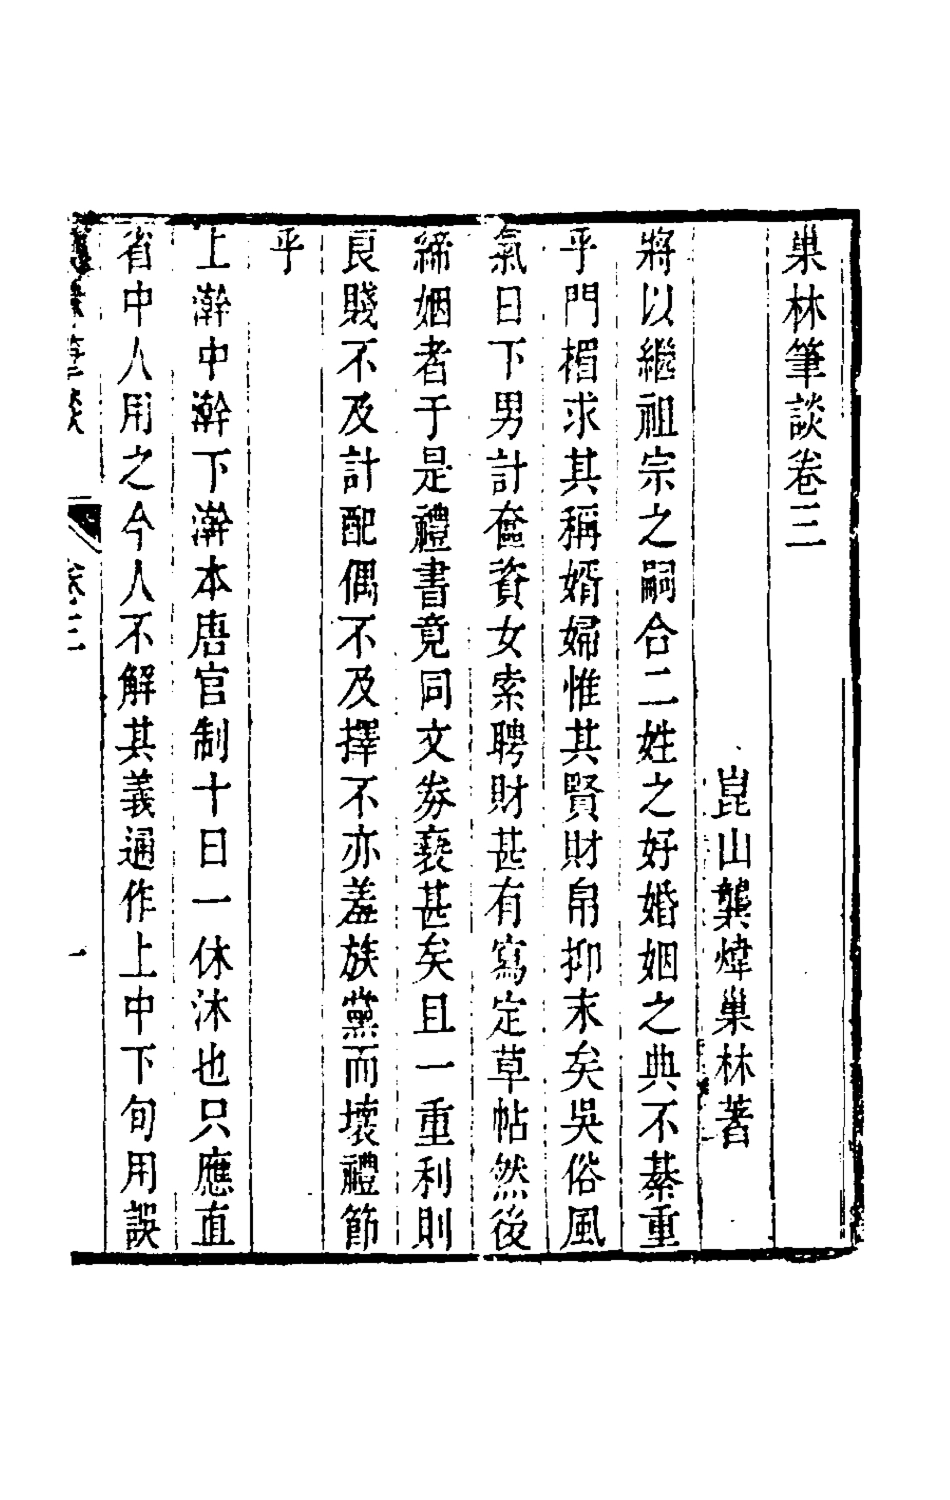 巢林筆談卷三
崑山龔煒巢林著
將以繼祖宗之嗣合二姓之好婚姻之典不綦重
乎門楣求其稱婿婦惟其賢財帛抑末矣吳俗風
氣日下男計奩資女索聘財甚有寫定草帖然後
締姻者于是禮書竟同文劵褻甚矣且一重利則
良賤不及計配偶不及擇不亦羞族黨而壞禮節
乎
上澣中澣下澣本唐官制十日一休沐也只應直
省中人用之今人不解其義通作上中下旬用誤
筆談 卷三 一